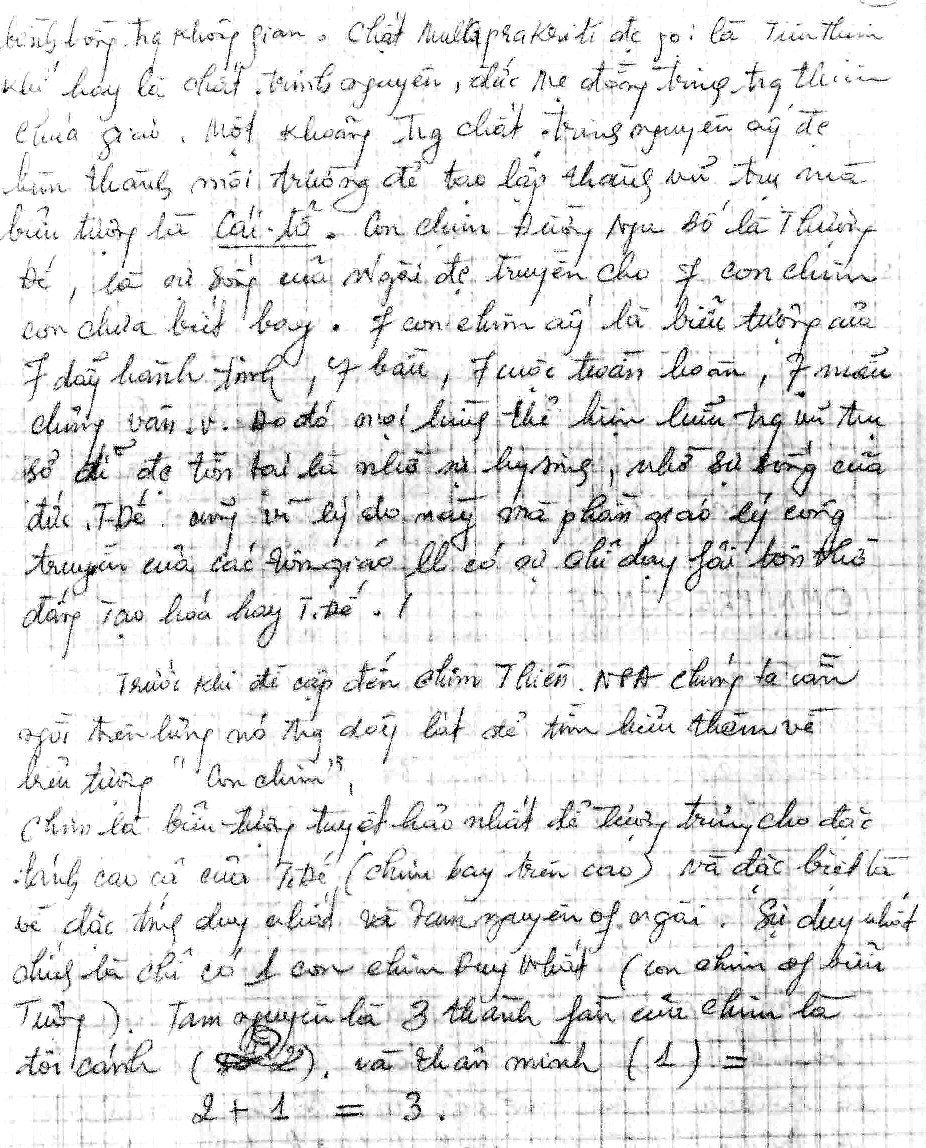 bềnh bồng trg không gian. Chất Mulaprakriti đc gọi là Tiên Thiên
Khí hay là chất trinh nguyên, đức Mẹ đồng trinh trg thiên
Chúa giáo. Một khoảng trg chất trinh nguyên ấy đc
biến thành môi trường để tạo lập thành vũ trụ mà
biểu tượng là Cái-tổ. Con chim Đường Ngu Bố là Thượng
Đế, là sự sống của Ngài đc truyền cho 7 con chim
con chưa biết bay. 7 con chim ấy là biểu tượng của
7 dãy hành tinh, 7 bầu, 7 cuộc tuần hoàn, 7 mẫu
chủng vân.v. Do đó mọi hình thể hiện hữu trg vũ trụ
sở dĩ đc tồn tại là nhờ sự hy sinh, nhờ sự sống của
đức T.Đế. cũng vì lý do này mà phần giáo lý công
truyền của các tôn giáo đã có sự chỉ dạy fải tôn thờ
đấng Tạo hoá hay T.Đế. /
Trước khi đề cập đến chim Thiên. NPA chúng ta cần
ngồi trên lưng nó trg dây lát để tìm hiểu thêm về
biểu tượng "Con chim",
Chim là biểu-tượng tuyệt hảo nhất để tượng trưng cho đặc
tánh cao cả của T.Đế (chim bay trên cao) và đặc biệt là
về đặc tính duy nhất và Tam nguyên of ngài. Sự duy nhất
chính là chỉ có 1 con chim Duy Nhất (con chim of biểu
Tượng). Tam nguyên là 3 thành fần của chim là
đôi cánh (2), và thân mình (1) =
2 + 1 = 3.